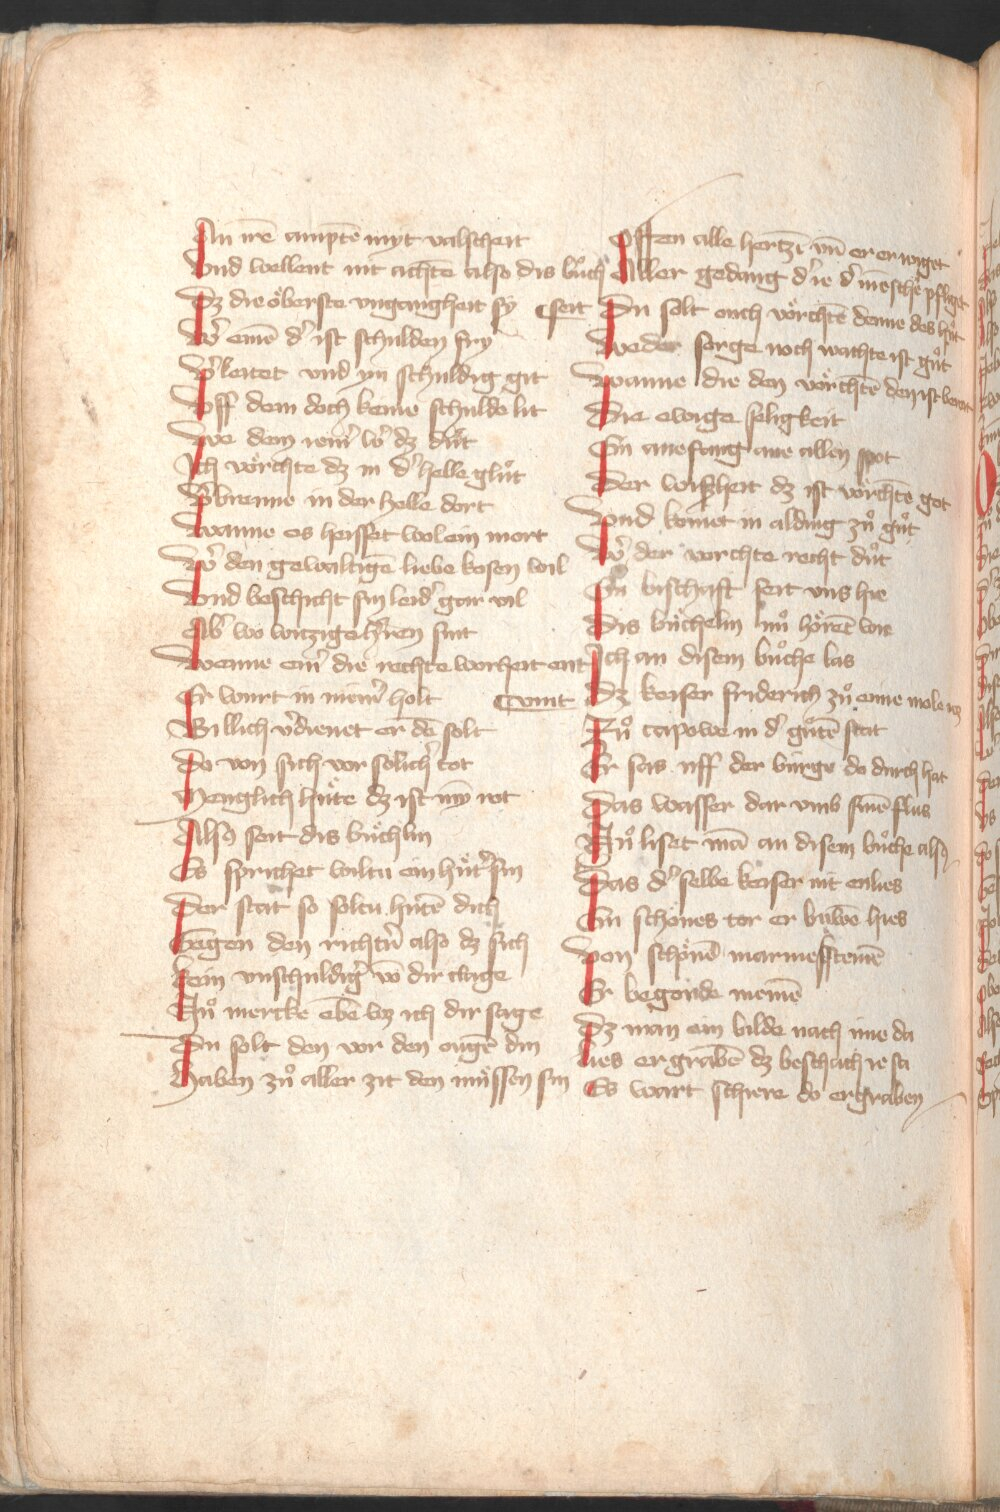 An irē amptē myt valscheit
Vnd wellent nit achtē also dis bůch
seit
Dz die öberste vngangheit sy
Wˀ einē dˀ ist schulden fry
Vˀleitet vnd yn schuldig git
Vff dem doch keine schulde lit
We dem iemˀ wˀ dz důt
Ich vörchte dz in dˀ helle glůt
Vˀbrenne in der helle dort
Wanne es heisset wol ein mort
Wˀ den gewaltigē liebe kosen wil
Vnd beschicht sin leidˀ gar vil
Abˀ wo witzige hˀren sint
Wenne einˀ die rechte worheit ent
Er wurt in niemˀ holt
Billich vˀdienet er dē solt
Do von sich vor solichˀ tot
Menglich hüte dz ist mȳ rot
Also seit dis büchlin
Es sprichet wiltu ein hütˀ sin
Der stat so soltu hütē dich
Gegen den richtˀn also dz sich
kein vnschuldigˀ vō dir clage
Nů mercke ebē wz ich dir sage
Du solt den vor den ougē din
Haben zů aller zit den müssen sin
Offen alle hertzē vn̄ er erwiget
Aller gedang dˀ ie dˀ mēsche pfliget
Du solt ouch vörchtē denne des hůt
Weder sorge noch wachte ist gůt
Wanne die den vörchtē den ist bereit
Die ewige seligkeit
Ein anefang ane allen spot
Der wiszheit dz ist vörchtē got
Vnd komet in alding zů gůt
Wˀ der vorchte recht důt
Ein bischaft seit vns hie
Dis büchelin nů hörēt wie
Ich an disem bůche las
Dz keiser friderich zů eime mole wz
Zů capowe in dˀ gůtē stat
Er sas uff der bürge do durch hat
Das wasser dar vmb sinē flus
Nů liset mā an disem bůche alsˀ
Das dˀ selbe keiser nit enlies
Ein schönes tor er buwē hies
Von schönē marmelsteinē
Er begonde meinē
Dz man ein bilde nach ime da
lies ergrabē dz beschach ie sa
Es wart schiere do ergraben